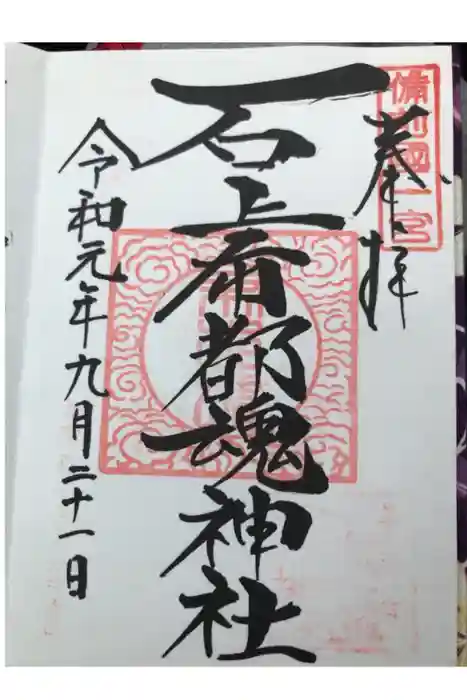 備前國一宮
奉拝
石上布都魂神社
令和元年九月二十一日